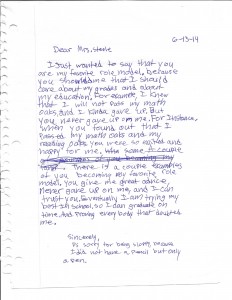 6-13-14
Dear Mrs. Steele
I just wanted to say that you
are my favorite role model, because
you showed me that I should
care about my grades and about
my education. For example, I knew
that I will not pass my math
oaks and I kinda gave up. But
you never gave up on me. For Instance,
when you found out that I
Passed my math oaks and my
reading oaks you were so excited and
happy for me.
There is a couple examples
of you becoming my favorite role
model. You give me great advice,
never gave up on me, and I can
trust you. Eventually I am trying my
best in school, so I can graduate on
time. And proving every body that doubted
me.
Sincerely,
PS sorry for being sloppy, because
I did not have a pencil but only
a pen.